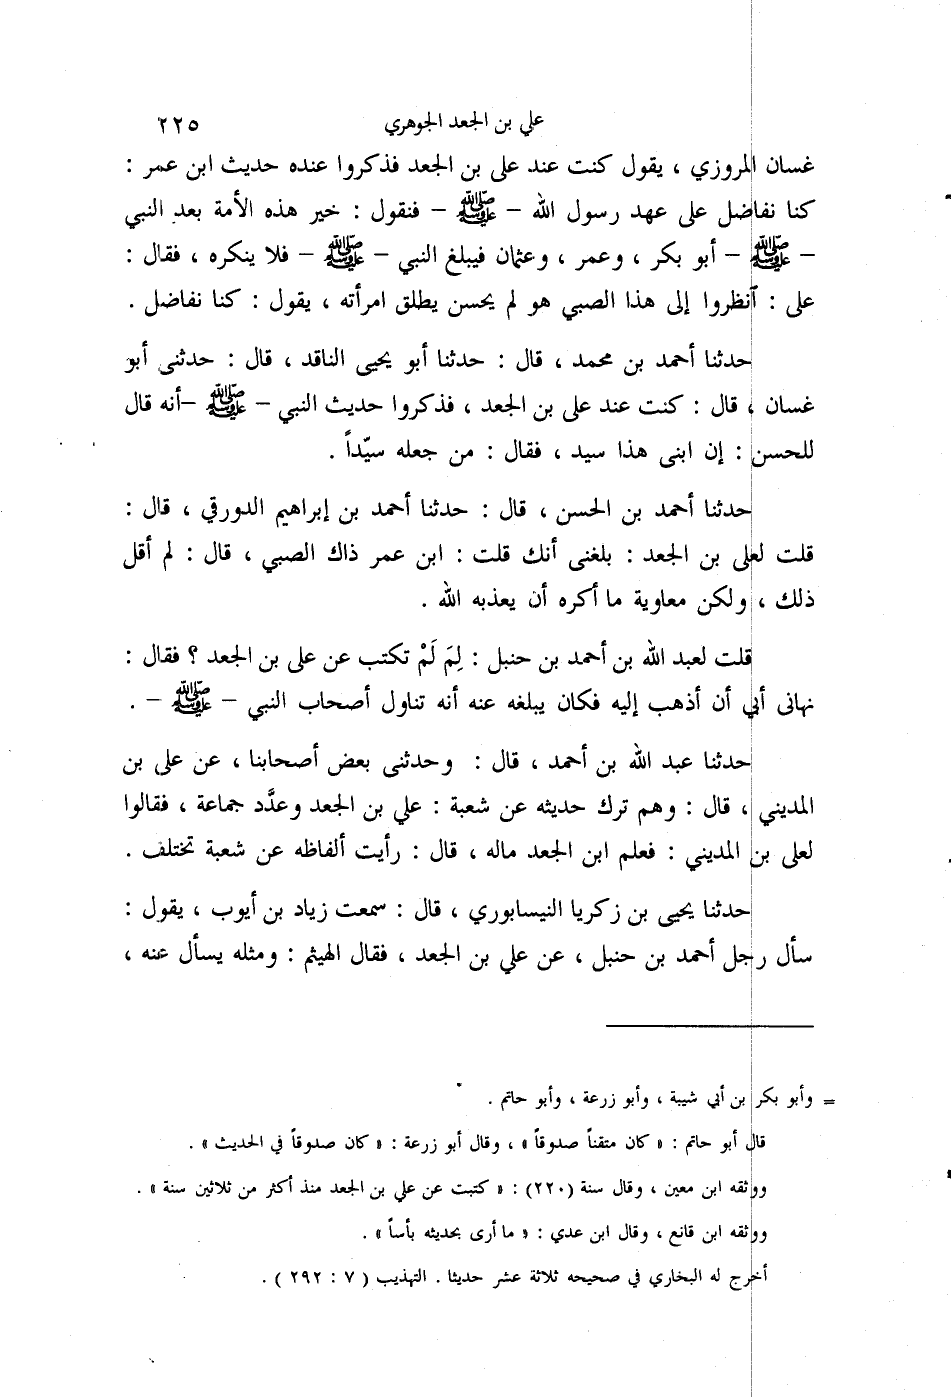 علي بن الجعد الجوهري ٢٢٥
غسان المروزي ، يقول كنت عند على بن الجعد فذكروا عنده حديث ابن عمر :
كنا نفاضل على عهد رسول الله – ﷺ – فنقول : خير هذه الأمة بعد النبي
– ﷺ – أبو بكر ، وعمر ، وعثمان فيبلغ النبي – ﷺ – فلا ينكره ، فقال :
على : أنظروا إلى هذا الصبي هو لم يحسن يطلق امرأته ، يقول : كنا نفاضل .
حدثنا أحمد بن محمد ، قال : حدثنا أبو يحيى الناقد ، قال : حدثنى أبو
غسان ، قال : كنت عند على بن الجعد ، فذكروا حديث النبي – ﷺ –أنه قال
للحسن : إن ابنى هذا سيد ، فقال : من جعله سيّداً .
حدثنا أحمد بن الحسن ، قال : حدثنا أحمد بن إبراهيم الدورقي ، قال :
قلت لعلى بن الجعد : بلغنى أنك قلت : ابن عمر ذاك الصبي ، قال : لم أقل
ذلك ، ولكن معاوية ما أكره أن يعذبه الله .
قلت لعبد الله بن أحمد بن حنبل : لِمَ لَمْ تكتب عن على بن الجعد ؟ فقال :
نهانى أبي أن أذهب إليه فكان يبلغه عنه أنه تناول أصحاب النبي – ﷺ – .
حدثنا عبد الله بن أحمد ، قال : وحدثنى بعض أصحابنا ، عن على بن
المديني ، قال : وهم ترك حديثه عن شعبة : علي بن الجعد وعدَّد جماعة ، فقالوا
لعلى بن المديني : فعلم ابن الجعد ماله ، قال : رأيت ألفاظه عن شعبة تختلف .
حدثنا يحيى بن زكريا النيسابوري ، قال : سمعت زياد بن أيوب ، يقول :
سأل رجل أحمد بن حنبل ، عن علي بن الجعد ، فقال الهيثم : ومثله يسأل عنه ،
= وأبو بكر بن أبي شيبة ، وأبو زرعة ، وأبو حاتم .
قال أبو حاتم : « كان متقناً صدوقاً » ، وقال أبو زرعة : « كان صدوقاً في الحديث » .
ووثقه ابن معين ، وقال سنة (٢٢٠) : « كتبت عن علي بن الجعد منذ أكثر من ثلاثين سنة » .
ووثقه ابن قانع ، وقال ابن عدي : « ما أرى بحديثه بأساً » .
أخرج له البخاري في صحيحه ثلاثة عشر حديثا . التهذيب ( ٧ : ٢٩٢ ) .